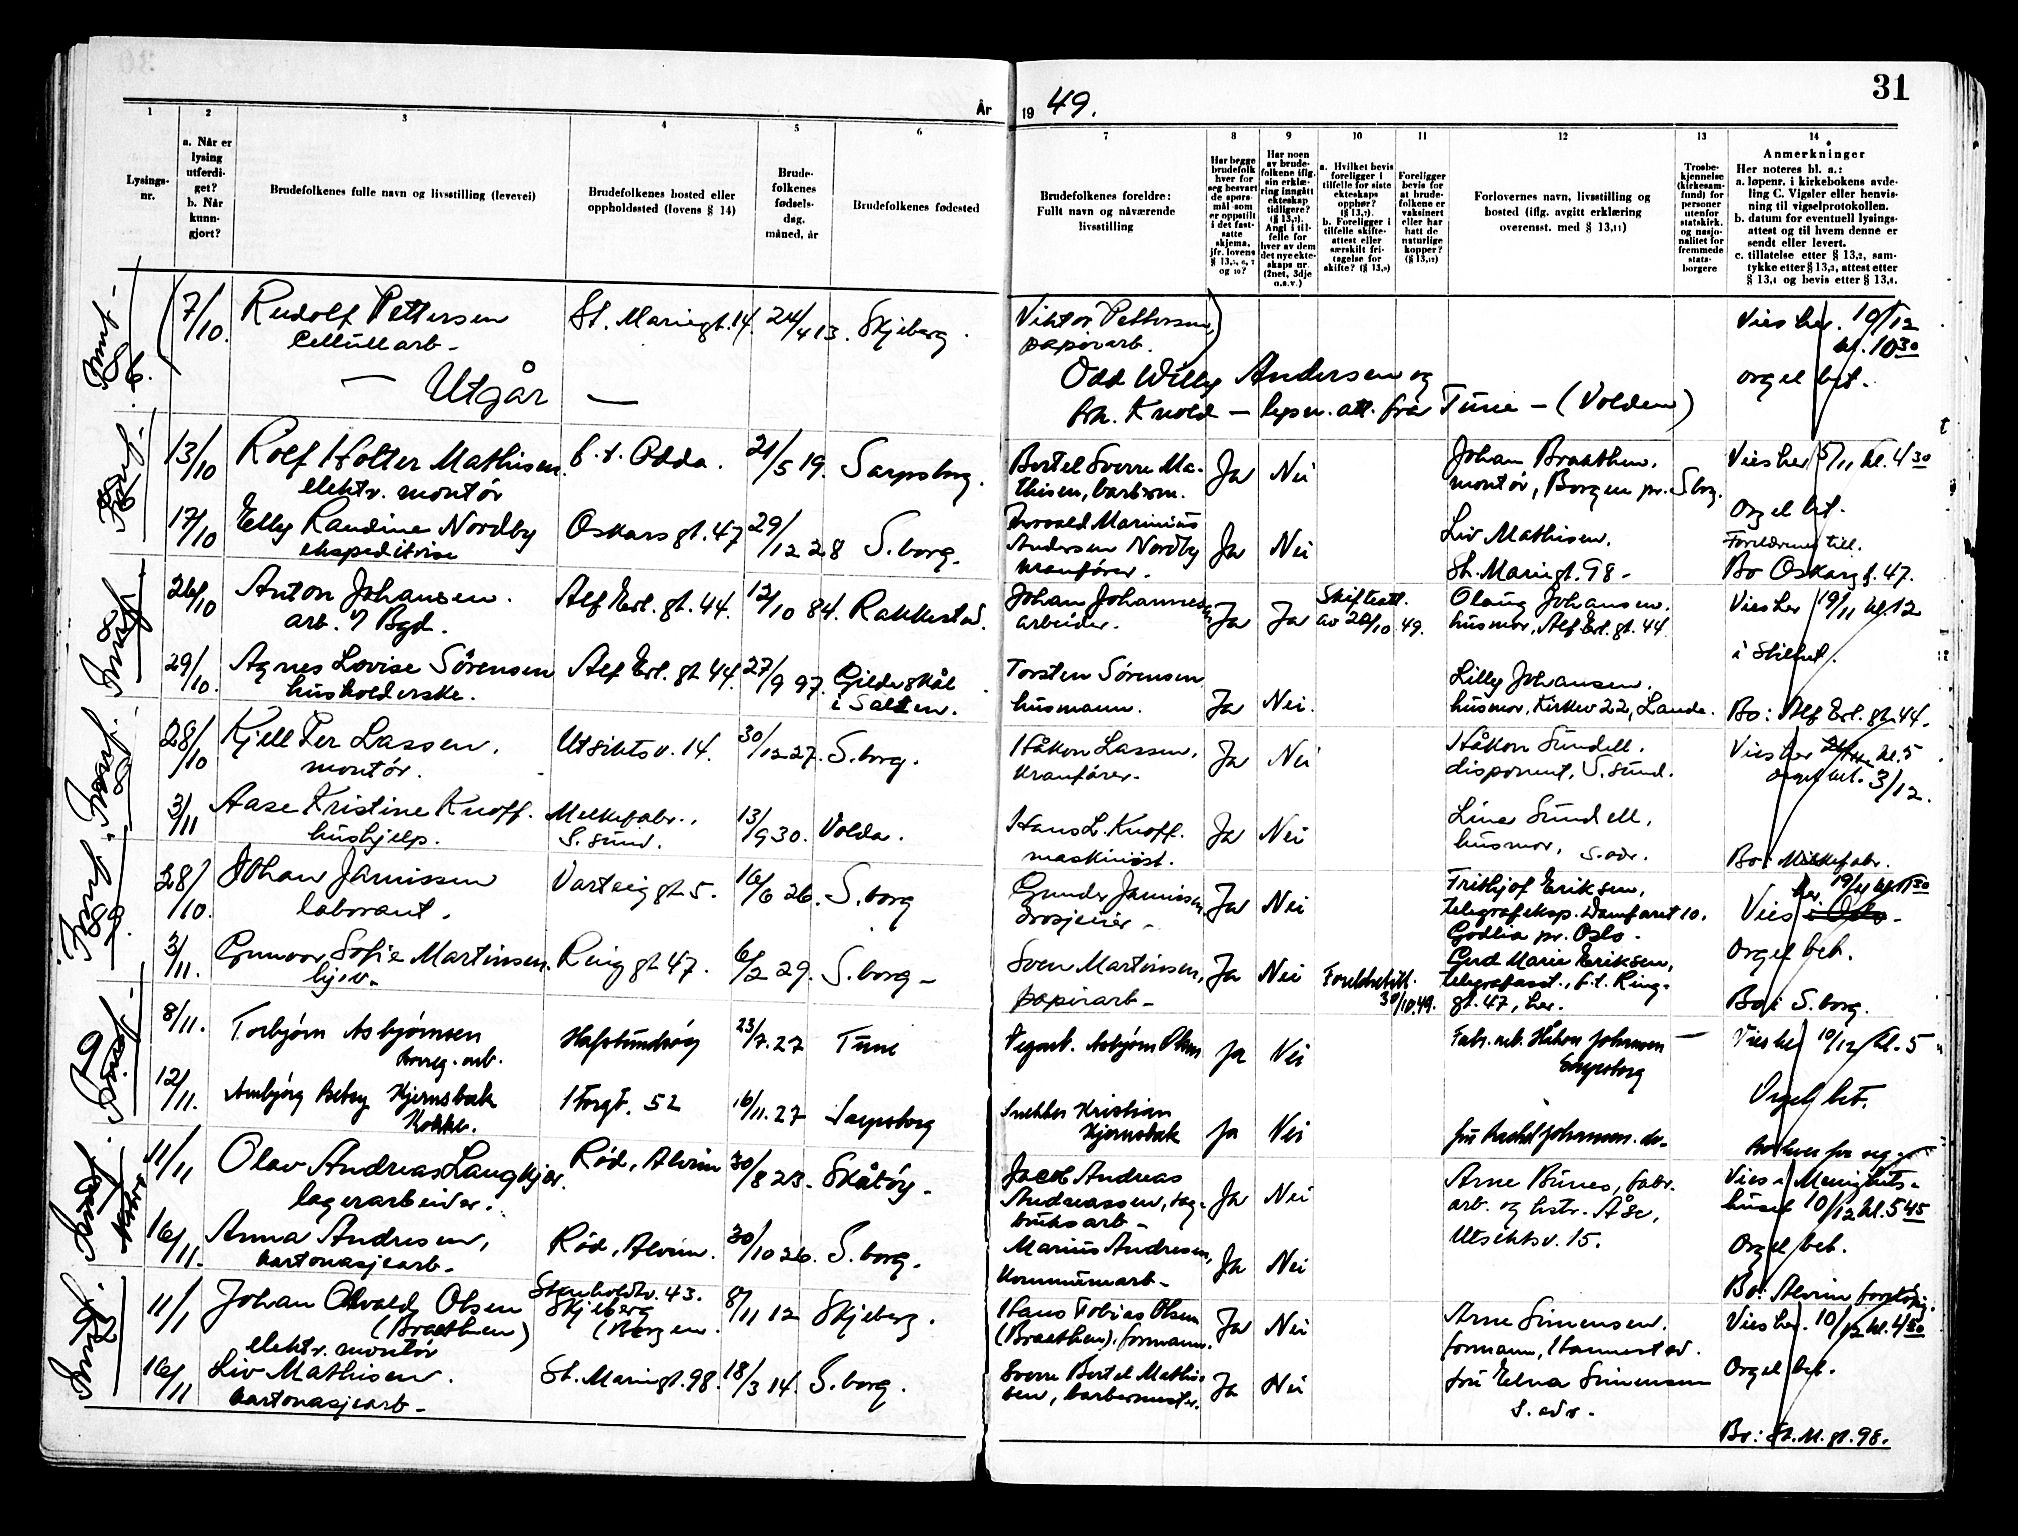 31
År
19 49.
1
2
3
4
5
6
7
8
9
10
11
12
13
14
Lysings-
nr.
a. Når er
lysing
utferdi-
get?
b. Når
kunn-
gjort?
Brudefolkenes fulle navn og livsstilling (levevei)
Brudefolkenes bosted eller
oppholdssted (lovens § 14)
Brude-
folkenes
fødsels-
dag,
måned, år
Brudefolkenes fødested
Brudefolkenes foreldre:
Fullt navn og nåværende
livsstilling
Har begge
brudefolk
hver for
seg besvart
de spørs-
mål som
er oppstilt
i det fast-
satte
skjema,
jfr. lovens
Har noen
av brude-
folkene iflg.
sin erklæ-
ring inngått
ekteskap
tidligere?
(§ 13,7).
Angi i til-
felle for
hver av dem
det nye ekte-
skaps nr.
(2net, 3dje
o.s.v.)
a. Hvilket bevis
foreligger i
tilfelle for siste
ekteskaps
opphør?
(§ 13,7).
b. Foreligger i
tilfelle skifte-
attest eller
særskilt fri-
tagelse for
skifte? (§ 13,9)
Foreligger
bevis for
at brude-
folkene er
vaksinert
eller har
hatt de
naturlige
kopper?
(§ 13,12)
Forlovernes navn, livsstilling og
bosted (iflg. avgitt erklæring
overensst. med § 13,11)
Trosbe-
kjennelse
(kirkesam-
fund) for
personer
utenfor
statskirk.
og nasjo-
nalitet for
fremmede
stats-
borgere
Anmerkninger
Her noteres bl. a.:
a. løpenr. i kirkebokens avde-
ling C. Vigsler eller henvis-
ning til vigselprotokollen.
b. datum for eventuell lysings-
attest og til hvem denne er
sendt eller levert.
c. tillatelse etter § 13,2, sam-
tykke etter § 13,3, attest etter
§ 13,4 og bevis etter § 13,6.
7/10 Rudolf Pettersen St. Mariegt. 14. 24/4 13. Skjeberg. Viktor Pettersen, Vies her. 10/12
Cellullarb. papirarb. kl. 10 30
— Utgår — Odd Willy Andersen og orgel bet.
frk. Knold — lysn. att. fra Tune — (Volden)
13/10 Rolf Holter Mathisen. f. t. Odda. 21/5 19. Sarpsborg. Bertel Sverre Ma- Ja Nei Johan Braathen. Vies her 5/11 kl. 4 30
elektr. montør thisen, barberm. montør, Borgen pr. Sbrg. Orgel bet.
17/10 Elly Randine Nordby Oskarsgt. 47 29/12 28 S.borg. Torvald Marinius Liv Mathisen.
ekspeditrise Andersen Nordby Ja Nei St. Mariegt. 98.
kranfører. Bo Oskarsg. 47.
26/10 Anton Johansen. Alf Erl. gt. 44. 12/10 84. Rakkestad. Johan Johannesen Ja Ja Skifteatt. Olaug Johansen. Vies her 19/11 kl. 12
arb. v/ Bgd. arbeider. av 22/10 49. husmor, Alf Erl. gt. 44. i stillhet.
29/10. Agnes Lovise Sørensen Alf Erl. gt 44. 27/9 97. Gildeskål Torsten Sørensen Lilly Johansen.
husholderske. i Salten. husmann. Ja Nei. husmor, Kirkev 22, Lande. Bo: Alf Erl. gt. 44.
28/10 Kjell Per Lassen. Utsiktsv. 14. 30/12 27. S.borg. Håkon Lassen. Ja Nei Håkon Sundell. Vies her kl. 5
montør. kranfører. disponent, S. sund. orgel bet. 3/12.
3/11 Aase Kristine Knoff. Melkefabr., 13/9 30. Volda. Hans L. Knoff. Ja Nei Line Sundell,
hushjelp. S. sund. maskinist. husmor, s. adr. Bo: Melkefabr.
28/10. Johan Jamissen Varteiggt. 5. 16/6 26. S.borg Gunder Jamissen Ja Nei Frithjof Eriksen, her 19/11 kl. 11 30
laborant. drosjeeier. telegrafeksp. Damfaret 10. Vies i Oslo.
Godlia pr. Oslo. Orgel bet.
3/11. Gunvor Sofie Martinsen. Ringgt. 47. 6/2 29. S.borg. Sven Martinsen, Ja Nei Foreldretill. Gerd Marie Eriksen,
hjv. papirarb. 30/10.49. telegrafasst., f.t. Ring-
gt. 47, her. Bo: S.borg.
8/11. Torbjørn Asbjørnsen Hafslundsøy 23/7.27 Tune Vegarb. Asbjørn Olsen ja Nei Fabr. arb. Håkon Johansen Vies her 10/12 kl. 5
Borreg. arb. Sarpsborg
12/11. Ambjørg Betsy Kjernsbæk Torgt. 52 16/11.27 Sarpsborg Snekker Kristian ja Nei fru Johansen. do. Orgel bet.
Kokke. Kjernsbæk
11/11 Olav Andreas Langkjær. Rød, Alvim 30/8 23. Skåtøy. Jacob Andreas Arne Bunes, fabr. Vies i Menighets-
lagerarbeider. Andreassen, sag- Ja Nei arb. og hstr. Åse, huset 10/12 kl. 5 45
bruksarb. Utsiktsv. 15. Orgel bet.
16/11. Anna Andresen, Rød, Alvim. 30/10 26. S.borg. Marius Andresen, Ja Nei
kartonasjearb. kommunearb. Bo: Alvim
11/1 Johan Osvald Olsen Stenholdtv. 43. 8/11 12 Skjeberg. Hans Tobias Olsen Ja Nei Arne Simensen. Vies her. 10/12 kl. 4 30
(Braathen) Skjeberg (Borgen. (Braathen). formann. formann, Hannestad. Orgel bet.
elektr. montør
16/11 Liv Mathisen. St. Mariegt. 98. 18/3 14. S.borg. Sverre Bertel Mathi- Ja Nei fru Elna Simensen
kartonasjearb. sen, barbermester. s. adr.
Bo: St. M. gt. 98.